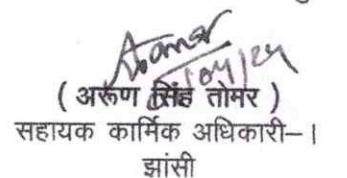 Tomar
( अरूण सिंह तोमर )
सहायक कार्मिक अधिकारी–।
झांसी